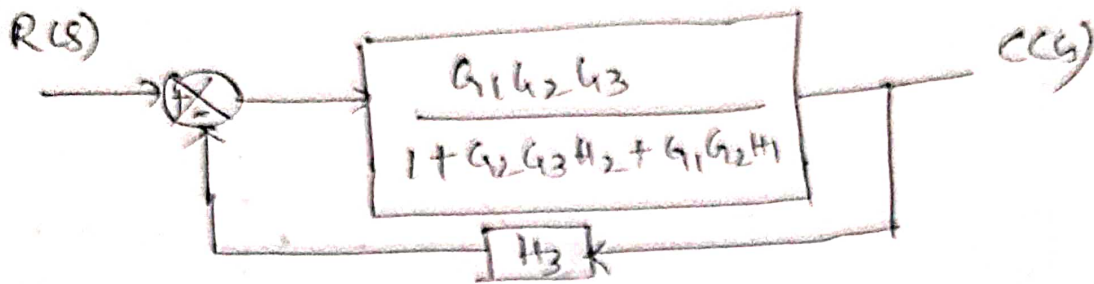 R(S)
C(S)
G1G2G3
1 + G2G3H2 + G1G2H1
+
-
H3